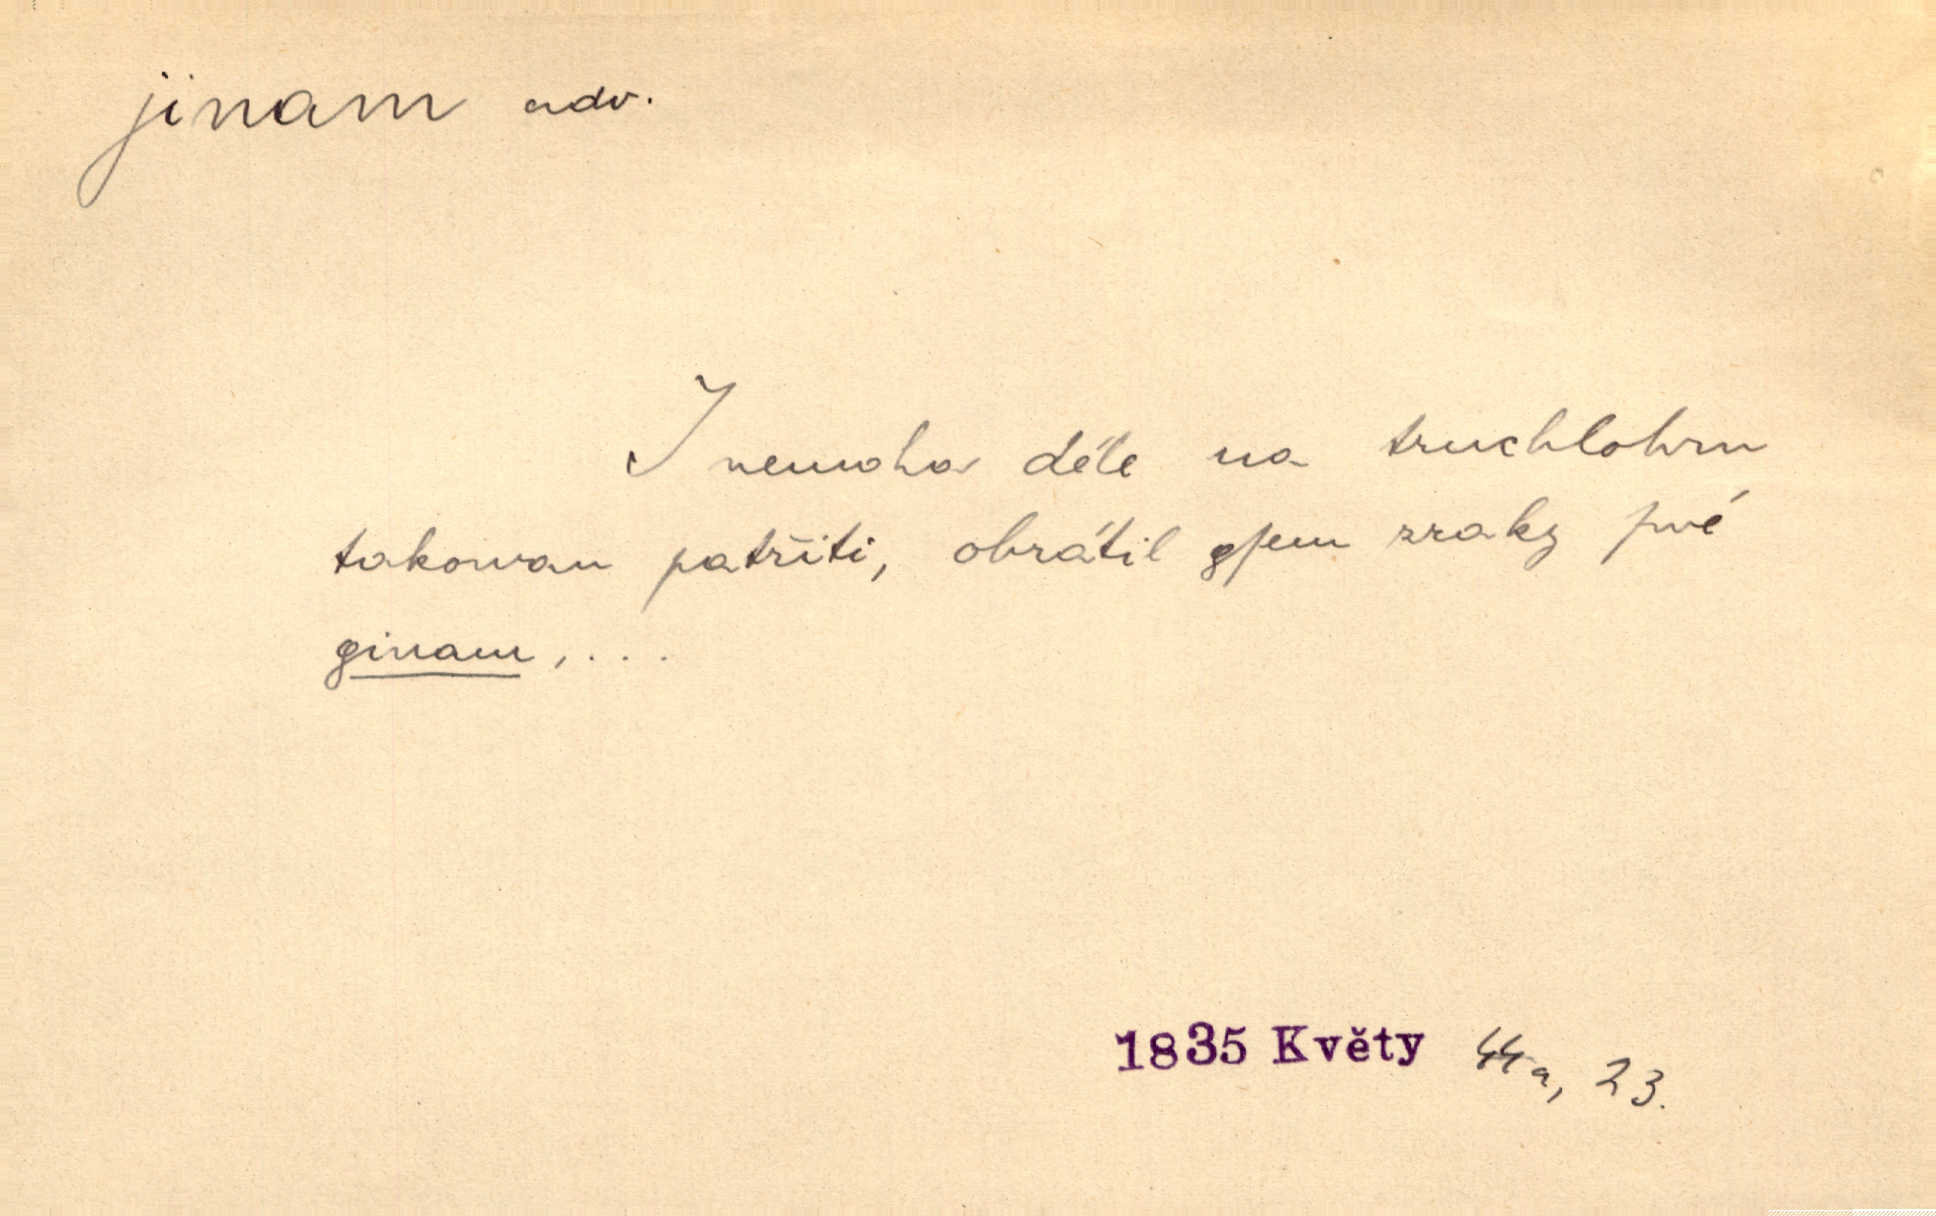 jinam adv.
I nemoha déle na truchlohru
takowau patřiti, obrátil gsem zraky swé
ginam, ...
1835 Květy 44a, 23.